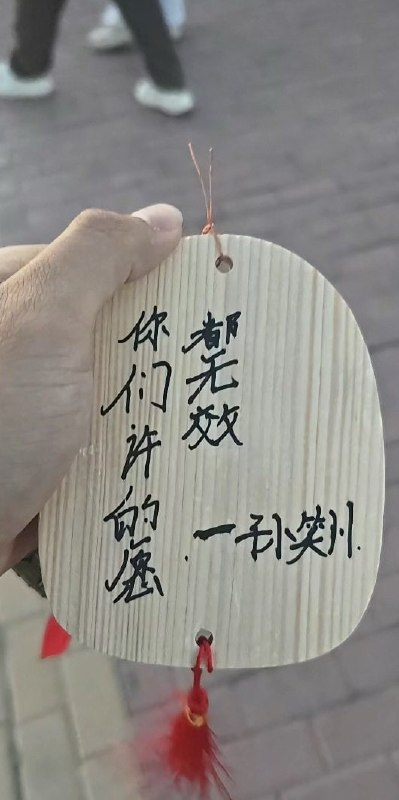 你们许的愿
都无效
一孙笑川